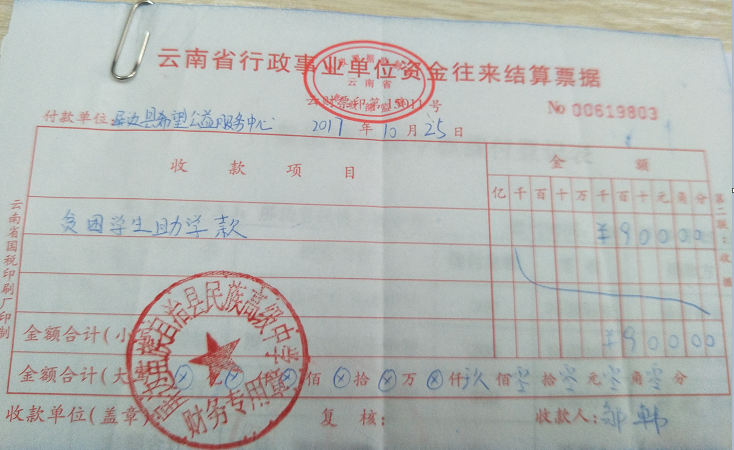 云南省行政事业单位资金往来结算票据
云南省
云财票印第15011号
No 00619803
付款单位 屏边县希望公益服务中心 2017 年 10 月 25 日
收款项目 金额
亿 千 百 十 万 千 百 十 元 角 分
贫困学生助学款 ¥90000
金额合计(小 ¥90000
金额合计(大 ⊗ ⊗ ⊗ 佰 ⊗ 拾 ⊗ 万 ⊗ 仟 玖 佰 零 拾 零 元 零 角 零 分
收款单位(盖章): 复核: 收款人: 邹韩
屏边苗族自治县民族高级中学
财务专用章
云南省国税印刷厂印制
第二联:收据